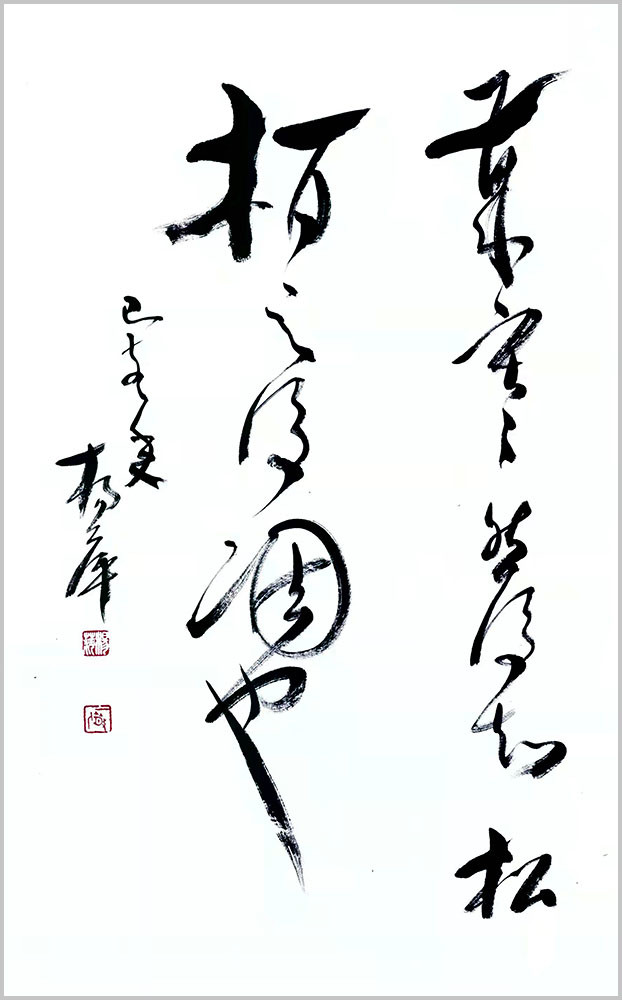 歲寒然後知松
柏之後凋也
己亥夏
楊